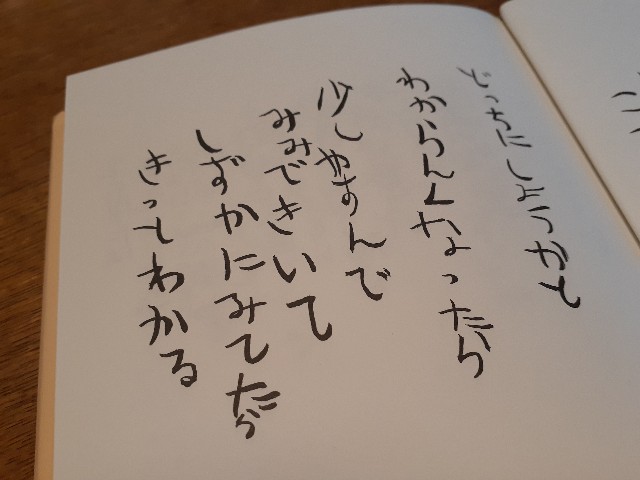 どっちにしようかと
わからんくなったら
少しやすんで
みみできいて
しずかにみてたら
きってわかる